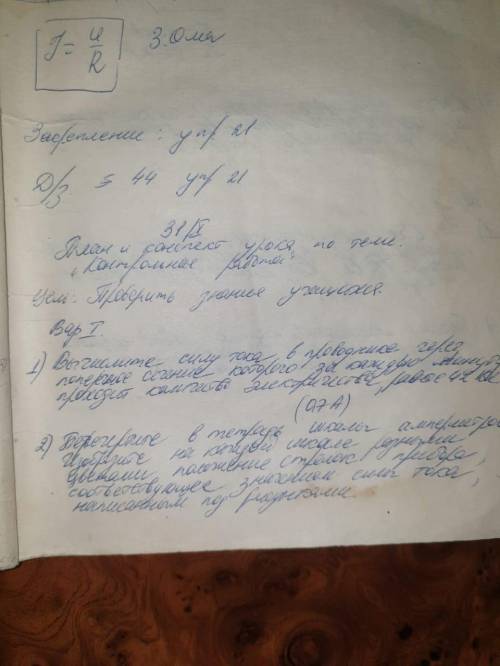 I = U/R З. Ома
Закрепление: упр 21
Д/з § 44 упр 21
31/IX
План и конспект урока по теме:
„Контрольная работа".
Цель: Проверить знания учащихся.
Вар I.
1) Вычислите силу тока в проводнике через
поперечное сечение которого за каждую минуту
проходит количество электричества, равное 42 Кл
(0,7 А)
2) Перечертите в тетрадь шкалы амперметров
Изобразите на каждой шкале разными
цветами положение стрелок прибора,
соответствующее значениям силы тока,
написанным под рисунками.